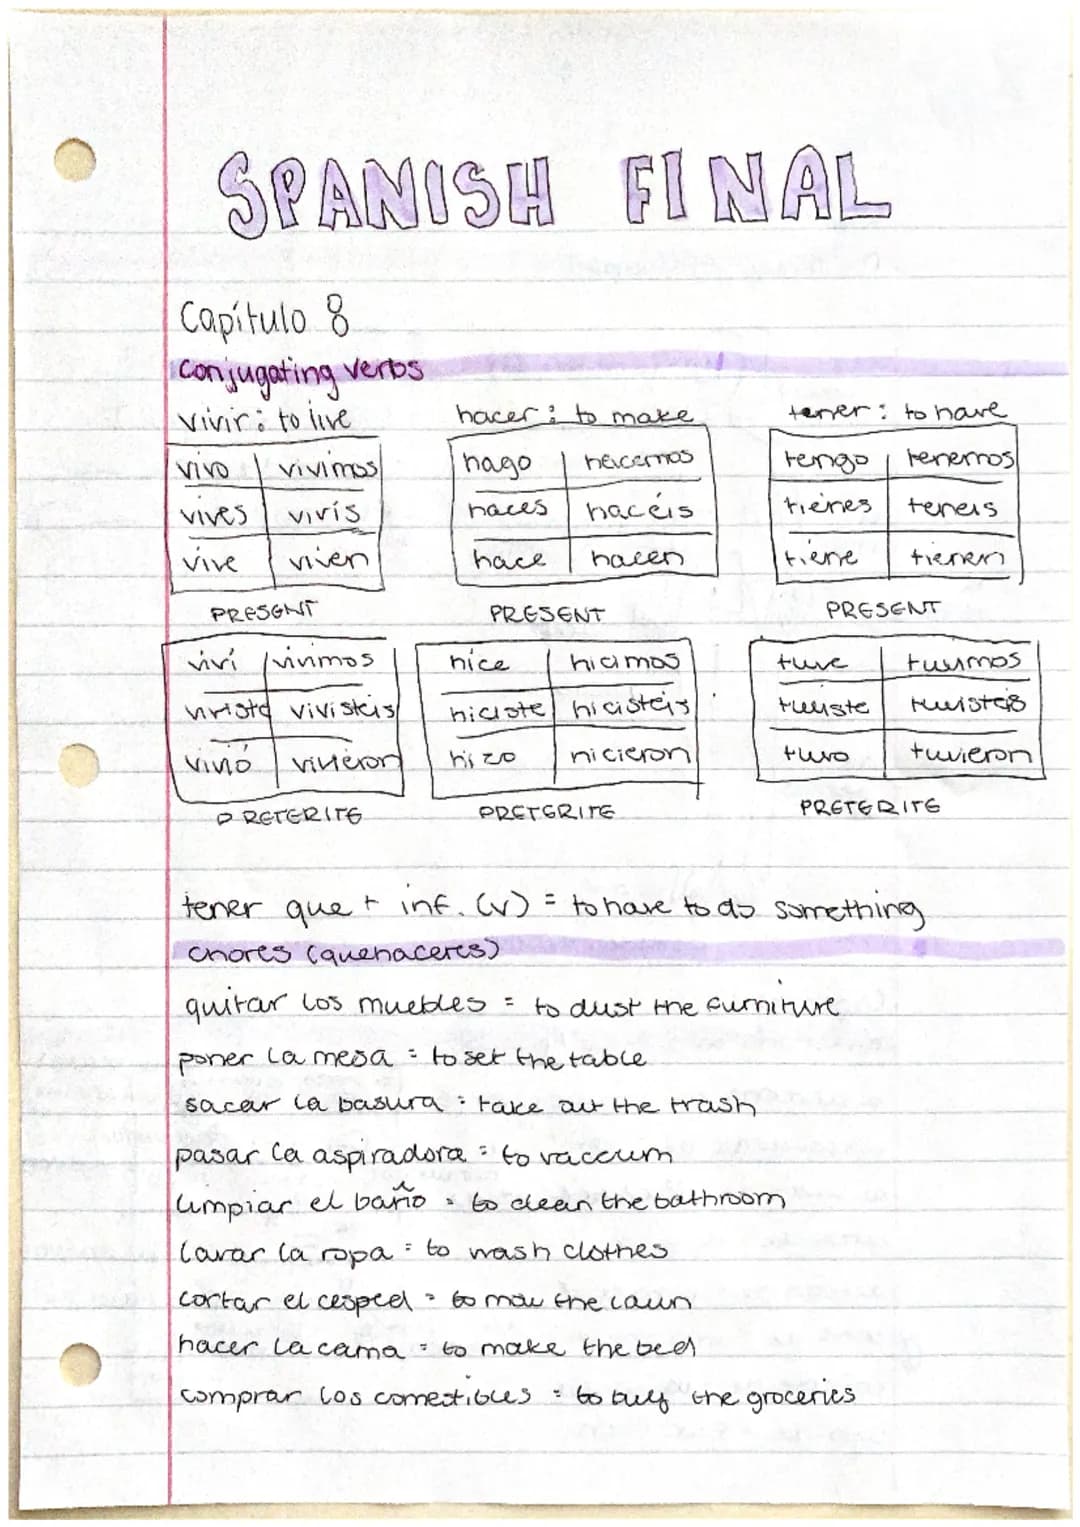 SPANISH FINAL
Capítulo 8
Conjugating verbs
vivir: to live
hacer: to make
tener: to have
vivo vivimos
hago hacemos
tengo tenemos
vives vivís
haces hacéis
tienes teneis
vive viven
hace hacen
tiene tienen
PRESENT
PRESENT
PRESENT
viví vivimos
hice hicimos
tuve tuvimos
viviste vivisteis
hiciste hicisteis
tuviste tuvisteis
vivió vivieron
hizo hicieron
tuvo tuvieron
PRETERITE
PRETERITE
PRETERITE
tener que + inf. (v) = to have to do something
chores (quehaceres)
quitar los muebles = to dust the furniture
poner la mesa = to set the table
sacar la basura = take out the trash
pasar la aspiradora = to vaccum
limpiar el baño = to clean the bathroom
lavar la ropa = to wash clothes
cortar el cesped = to mow the lawn
hacer la cama = to make the bed
comprar los comestibles = to buy the groceries